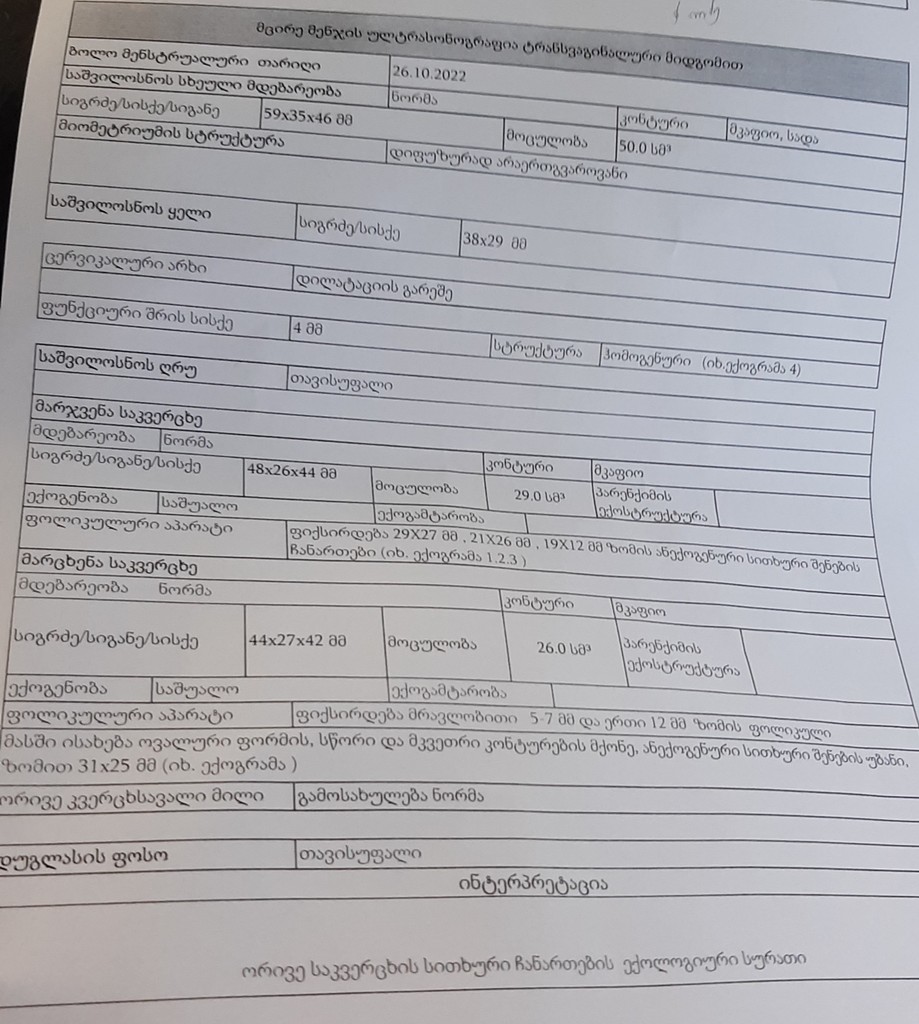 მცირე მენჯის ულტრასონოგრაფია ტრანსვაგინალური მიდგომით
ბოლო მენსტრუალური თარიღი 26.10.2022
საშვილოსნოს სხეული მდებარეობა ნორმა
სიგრძე/სისქე/სიგანე 59x35x46 მმ მოცულობა 50.0 სმ³ კონტური მკაფიო, სადა
მიომეტრიუმის სტრუქტურა დიფუზურად არაერთგვაროვანი
საშვილოსნოს ყელი სიგრძე/სისქე 38x29 მმ
ცერვიკალური არხი დილატაციის გარეშე
ფუნქციური შრის სისქე 4 მმ სტრუქტურა ჰომოგენური (იხ.ექოგრამა 4)
საშვილოსნოს ღრუ თავისუფალი
მარჯვენა საკვერცხე
მდებარეობა ნორმა
სიგრძე/სიგანე/სისქე 48x26x44 მმ მოცულობა კონტური 29.0 სმ³ მკაფიო პარენქიმის ექოსტრუქტურა
ექოგენობა საშუალო ექოგამტარობა
ფოლიკულური აპარატი ფიქსირდება 29X27 მმ , 21X26 მმ , 19X12 მმ ზომის ანექოგენური სითხური შენების
ჩანართები (იხ. ექოგრამა 1.2.3 )
მარცხენა საკვერცხე
მდებარეობა ნორმა კონტური მკაფიო
სიგრძე/სიგანე/სისქე 44x27x42 მმ მოცულობა 26.0 სმ³ პარენქიმის ექოსტრუქტურა
ექოგენობა საშუალო ექოგამტარობა
ფოლიკულური აპარატი ფიქსირდება მრავლობითი 5-7 მმ და ერთი 12 მმ ზომის ფოლიკული
მასში ისახება ოვალური ფორმის, სწორი და მკვეთრი კონტურების მქონე, ანექოგენური სითხური შენების უბანი,
ზომით 31x25 მმ (იხ. ექოგრამა )
ორივე კვერცხსავალი მილი გამოსახულება ნორმა
დუგლასის ფოსო თავისუფალი
ინტერპრეტაცია
ორივე საკვერცხის სითხური ჩანართების ექოლოგიური სურათი